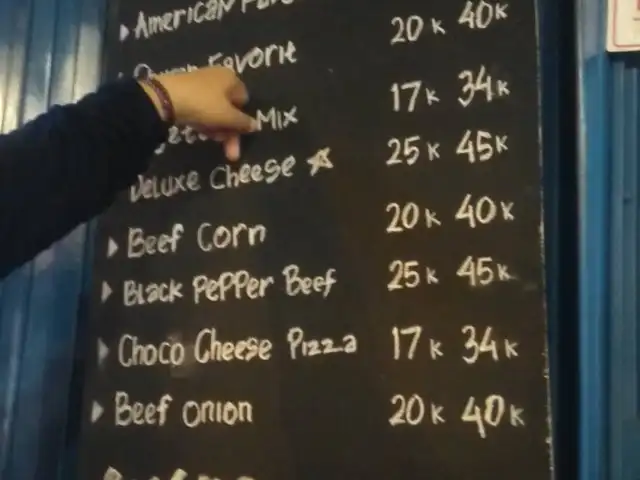 American
Favorit 20K 40K
Mix 17K 34K
Deluxe Cheese 25K 45K
Beef Corn 20K 40K
Black Pepper Beef 25K 45K
Choco Cheese Pizza 17K 34K
Beef Onion 20K 40K